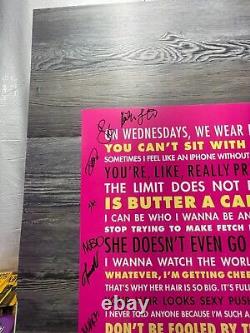 ON WEDNESDAYS, WE WEAR
YOU CAN'T SIT WITH
SOMETIMES I FEEL LIKE AN IPHONE WITHOUT
YOU'RE, LIKE, REALLY PR
THE LIMIT DOES NOT
IS BUTTER A CA
I CAN BE WHO I WANNA BE AN
STOP TRYING TO MAKE FETCH
SHE DOESN'T EVEN GO
I WANNA WATCH THE WORLD
WHATEVER, I'M GETTING CHEE
THAT'S WHY HER HAIR IS SO BIG. IT'S FULL
LOOKS SEXY PUSH
I NEVER TOLD ANYONE BECAUSE I'M SUCH
DON'T BE FOOLED BY